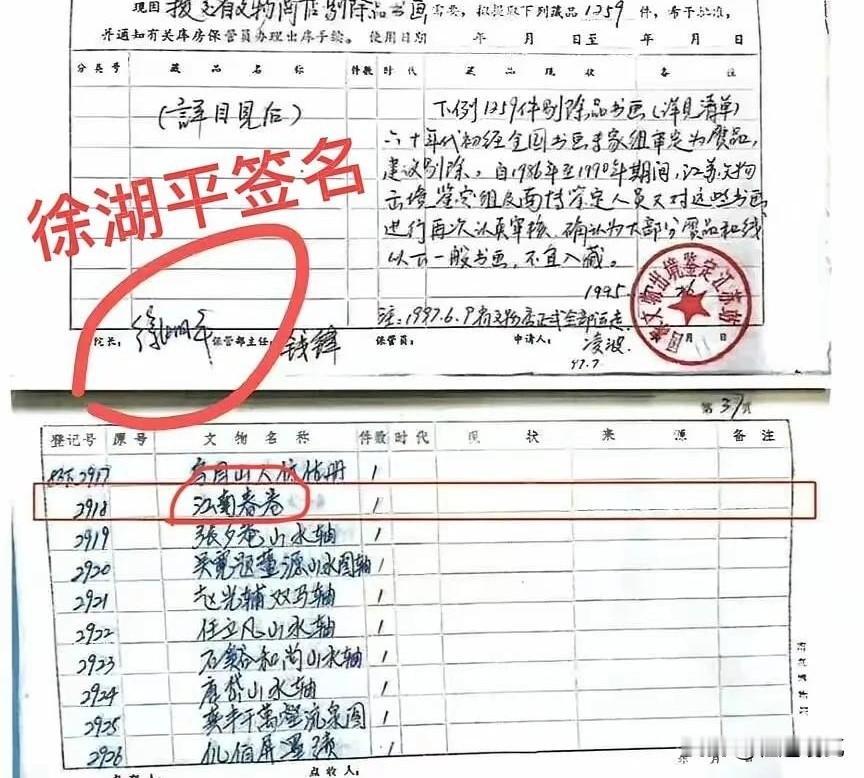 现因 拨交省文物商店剔除品书画 需要,拟提取下列藏品1259件,希予批准,
并通知有关库房保管员办理出库手续。使用日期 年 月 日至 年 月 日
分类号 藏品名称 件数 时代 藏品现状 备注
(詳目見后)
下例1259件剔除品书画(详见清单)
六十年代初经全国书画专家组审定为赝品,
建议剔除。自1986年至1990年期间,江苏文物
出境鉴定组及南博鉴定人员又对这些书画
进行再次认真审核,确认为大部分赝品和线
以下一般书画,不宜入藏。
1995
徐湖平签名
注:1997.6.9省文物店正式全部运走
院长: 徐湖平 保管部主任: 钱锋 保管员: 申请人: 凌波
97.7
国家文物出境鉴定江苏站
月 日
第 37 页
登记号 原号 文物名称 件数 时代 现状 来源 备注
2917 1
2918 江南春卷 1
2919 張夕庵山水轴 1
2920 吴寬題董源山水图轴 1
2921 赵光辅双马轴 1
2922 任立凡山水轴 1
2923 石谿和尚山水轴 1
2924 唐岱山水轴 1
2925 奚丰千萬壑流泉图 1
2926 仇伯屏墨蹟 1
点收人: 年 月 日